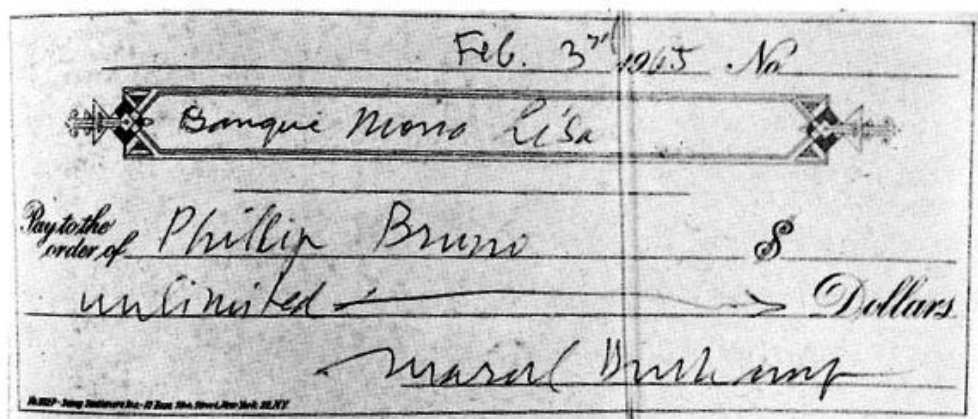 Feb. 3rd 1965 No
Banque Mona Lisa
Pay to the order of Phillip Bruno $
unlimited Dollars
Marcel Duchamp